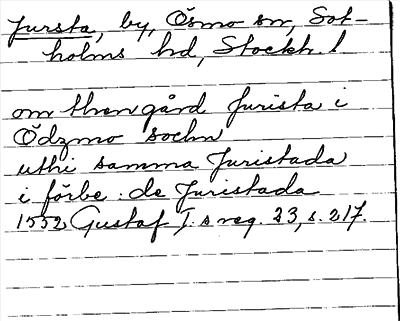 Jursta, by, Ösmo sn, Sot-
holms hd, Stockh. l
om then gård Jurista i
Ödzmo sochn
uthi samma Juristada
i förbe. de Juristada
1552 Gustaf I:s reg. 23, s. 217.